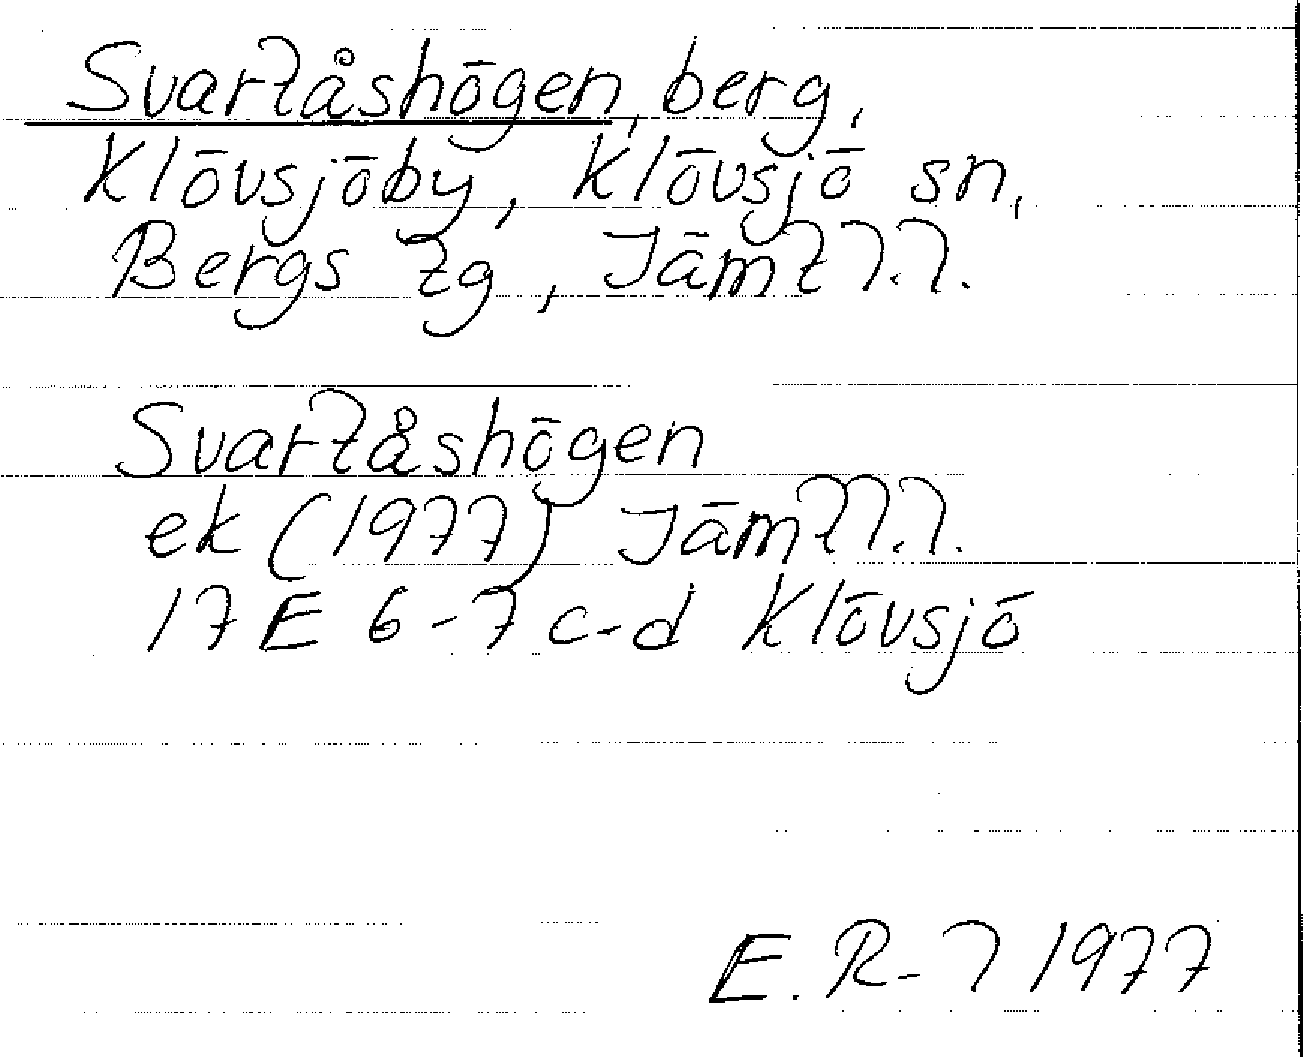 Svartåshögen, berg,
Klövsjöby, Klövsjö sn,
Bergs tg, Jämtl.l.
Svartåshögen
ek (1977) Jämtl.l.
17E 6-7 c-d Klövsjö
E. 1977